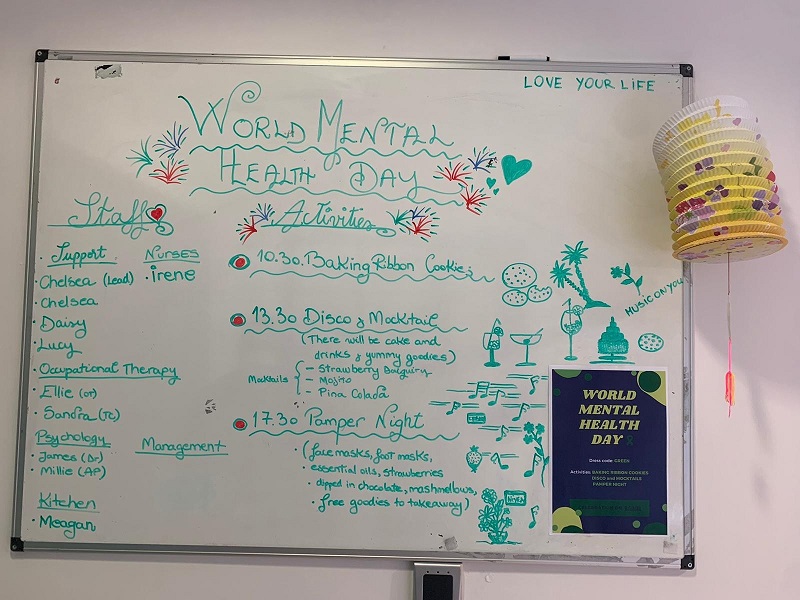 LOVE YOUR LIFE
WORLD MENTAL
HEALTH DAY
Staff
Activities
Support
Chelsea (Lead)
Chelsea
Daisy
Lucy
Nurses
Irene
Ocupational Therapy
Ellie (OT)
Sandra (TC)
Psychology
James (Dr)
Millie (AP)
Management
Kitchen
Meagan
10.30. Baking Ribbon Cookies
13.30 Disco & Mocktail
(There will be cake and
drinks & yummy goodies)
Mocktails
- Strawberry Daiquiry
- Mojito
- Pina Colada
17.30 Pamper Night
(face masks, foot masks,
essential oils, strawberries
dipped in chocolate, mashmellows,
free goodies to takeaway)
MUSIC ON YOU
WORLD
MENTAL
HEALTH
DAY
Dress code: GREEN
Activities: BAKING RIBBON COOKIES
DISCO and MOCKTAILS
PAMPER NIGHT